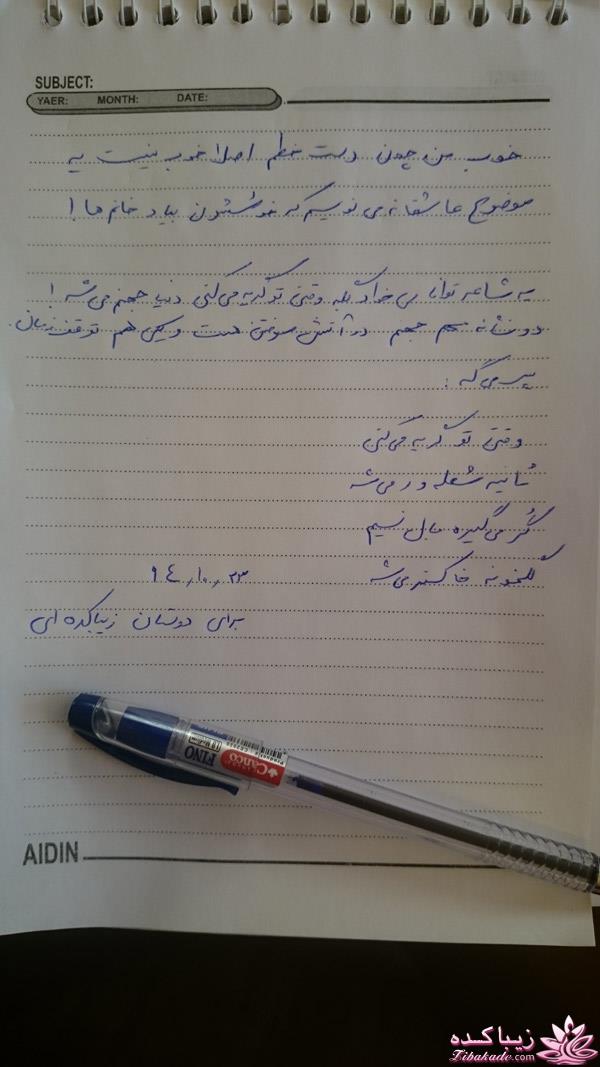 SUBJECT:
YAER: MONTH: DATE:
خوب من چون دست خطم اصلا خوب نیست یه
موضوع عاشقانه می نویسم که خوشتون بیاد خانم ها!
یه شاعر توانا می خواد بگه وقتی تو گریه می کنی دنیا جهنم می شه!
دو نشانه مهم جهنم در آتش سوختن هست و یکی هم توقف زمان.
پس می گه:
وقتی تو گریه می کنی
ثانیه شعله ور می شه
گُر می گیره بال نسیم
گلخونه خاکستر می شه
94,10,23
برای دوستان زیباکده ای
FINO
Canco
AIDIN
زیباکده
Zibakade.com